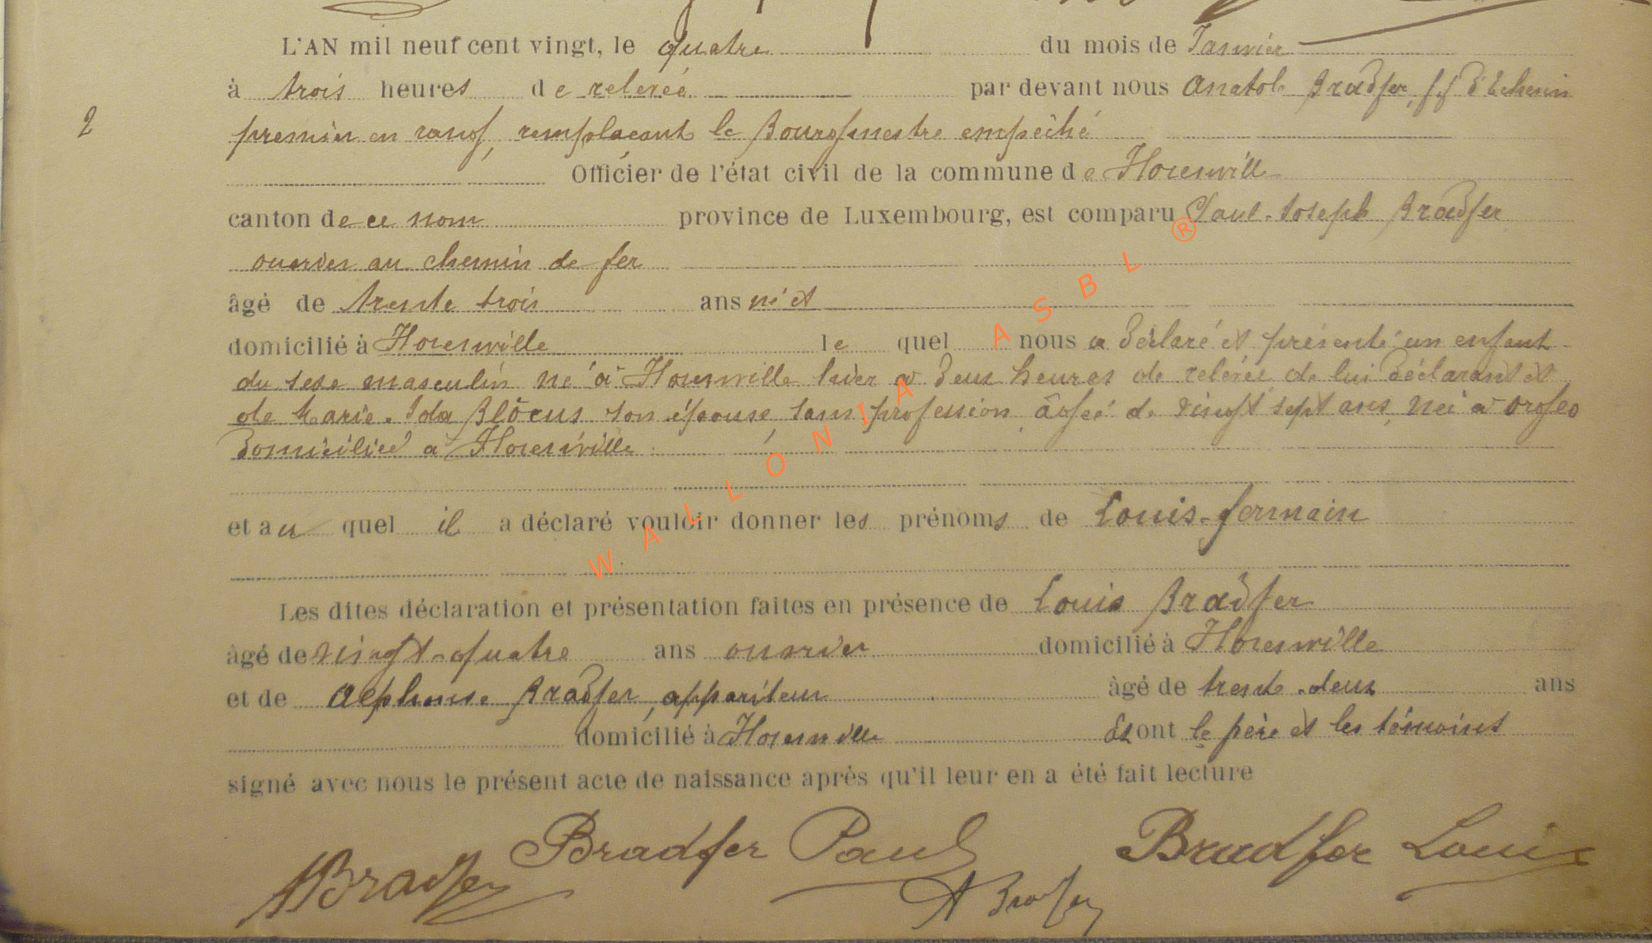 L'AN mil neuf cent vingt, le quatre du mois de Janvier
à trois heures de relevée par devant nous Anatole Bradfer, ff d'Echevin
2
premier en rang, remplaçant le Bourgmestre empêché
Officier de l'état civil de la commune de Florenville
canton de ce nom province de Luxembourg, est comparu Paul-Joseph Bradfer
ouvrier au chemin de fer
âgé de trente trois ans né et
domicilié à Florenville le quel nous a déclaré et présenté un enfant
du sexe masculin né à Florenville hier à deux heures de relevée de lui déclarant et
de Marie-Ida Blocus son épouse, sans profession, âgée de vingt sept ans, née à Orgeo
domiciliée à Florenville
et au quel il a déclaré vouloir donner les prénoms de Louis-Germain
Les dites déclaration et présentation faites en présence de Louis Bradfer
âgé de vingt-quatre ans ouvrier domicilié à Florenville
et de Alphonse Bradfer, appariteur âgé de trente-deux ans
domicilié à Florenville Et ont le père et les témoins
signé avec nous le présent acte de naissance après qu'il leur en a été fait lecture
ABradfer Bradfer Paul A Bradfer Bradfer Louis
WALLONIA ASBL ®